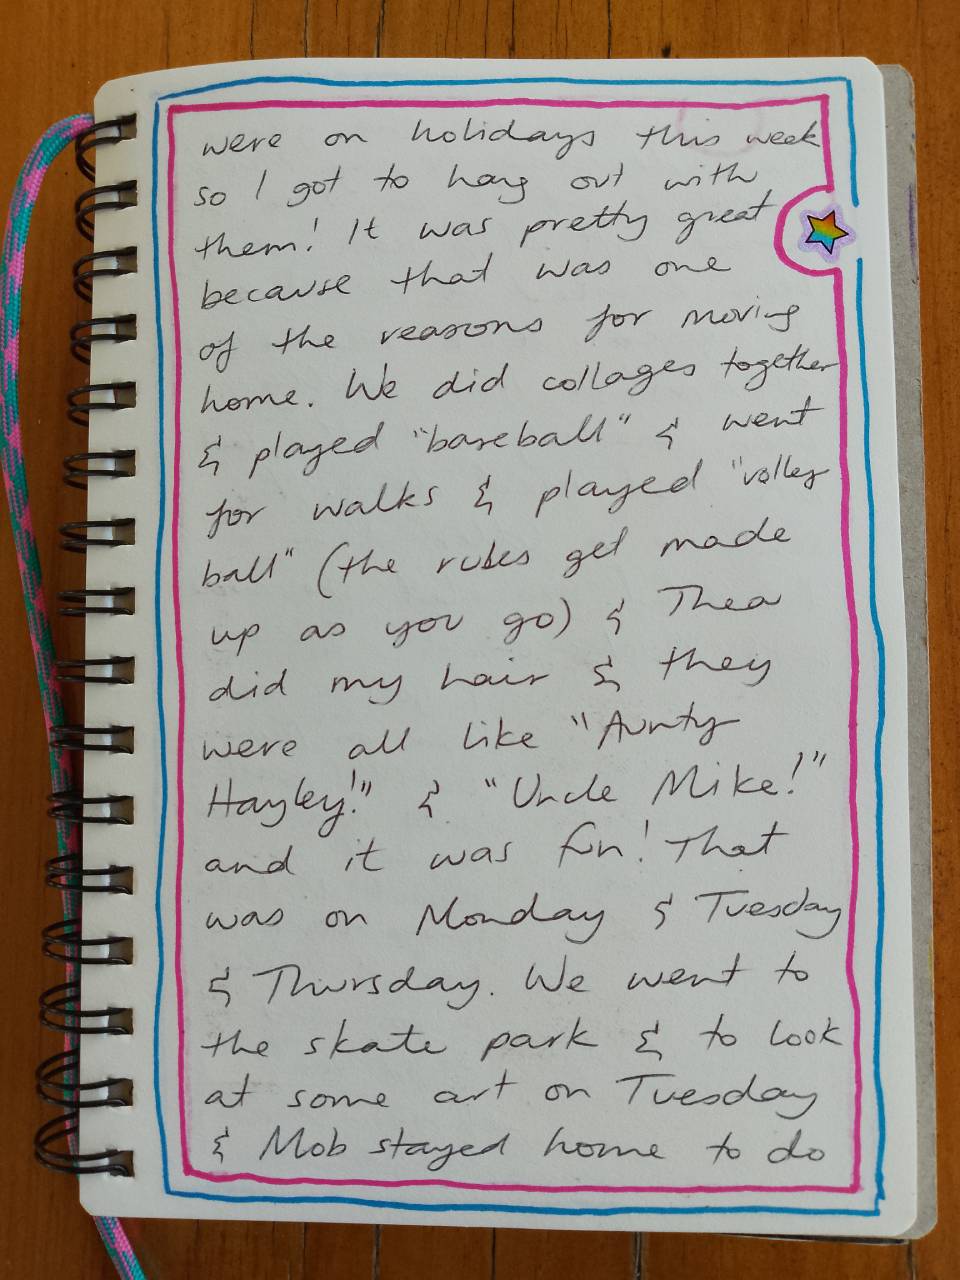 were on holidays this week
so I got to hang out with
them! It was pretty great
because that was one
of the reasons for moving
home. We did collages together
& played "baseball" & went
for walks & played "volley
ball" (the rules get made
up as you go) & Thea
did my hair & they
were all like "Aunty
Hayley!" & "Uncle Mike!"
and it was fun! That
was on Monday & Tuesday
& Thursday. We went to
the skate park & to look
at some art on Tuesday
& Mob stayed home to do